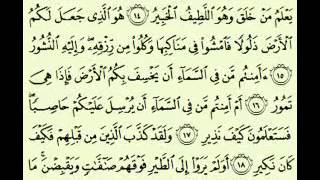 يَعْلَمُ مَنْ خَلَقَ وَهُوَ اللَّطِيفُ الْخَبِيرُ ﴿١٤﴾ هُوَ الَّذِي جَعَلَ لَكُمُ
الْأَرْضَ ذَلُولًا فَامْشُوا فِي مَنَاكِبِهَا وَكُلُوا مِن رِّزْقِهِ ۖ وَإِلَيْهِ النُّشُورُ
﴿١٥﴾ ءَأَمِنتُم مَّن فِي السَّمَاءِ أَن يَخْسِفَ بِكُمُ الْأَرْضَ فَإِذَا هِيَ
تَمُورُ ﴿١٦﴾ أَمْ أَمِنتُم مَّن فِي السَّمَاءِ أَن يُرْسِلَ عَلَيْكُمْ حَاصِبًا ۖ
فَسَتَعْلَمُونَ كَيْفَ نَذِيرِ ﴿١٧﴾ وَلَقَدْ كَذَّبَ الَّذِينَ مِن قَبْلِهِمْ فَكَيْفَ
كَانَ نَكِيرِ ﴿١٨﴾ أَوَلَمْ يَرَوْا إِلَى الطَّيْرِ فَوْقَهُمْ صَافَّاتٍ وَيَقْبِضْنَ ۚ مَا